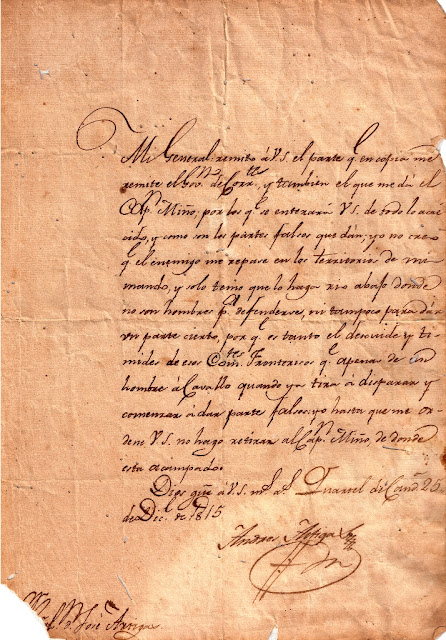 Mi General: remito á V.S. el parte q.e en copia me
remite el Gov.or de Corr.tes y tambien el que me dá el
Cap.n Miño, por los q.e se enterará V.S. de todo lo aca
cido, y como son los partes falsos que dán; yo no creo
q.e el enemigo me repase en los territorios de mi
mando, y solo temo que lo haga rio abajo donde
no son hombres p.a defenderse, ni tampoco para dár
un parte cierto, por q.e es tanto el descuido y ti=
midés de esos Com.tes Fronterisos q.e apenas
hombre á Cavallo quando ya tira á disparar, y
comenzar á dar parte falso: yo hasta que me or=
dene V.S. no hago retirar al Cap.n Miño, de donde
esta acampado.
Dios gũe á V.S. m.s a.s Quartel de Cand.a 25
de Dic.e de 1815
Andres Artigas
D.n José Artigas